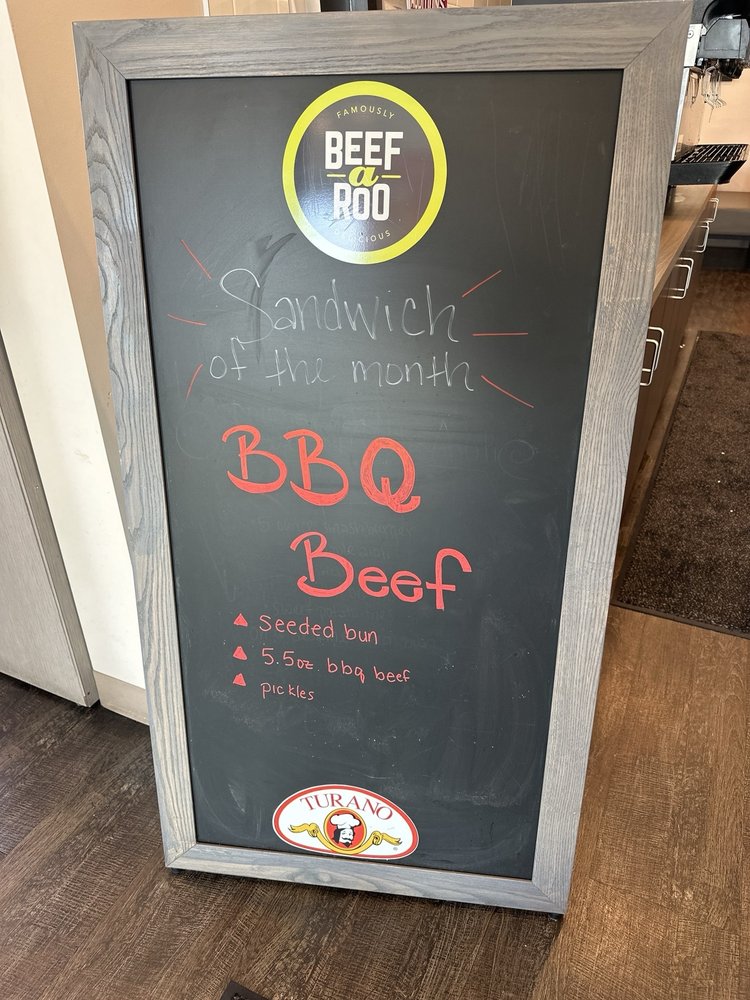 FAMOUSLY
BEEF
a
ROO
DELICIOUS
Sandwich
of the month
BBQ
Beef
seeded bun
5.5oz bbq beef
pickles
TURANO